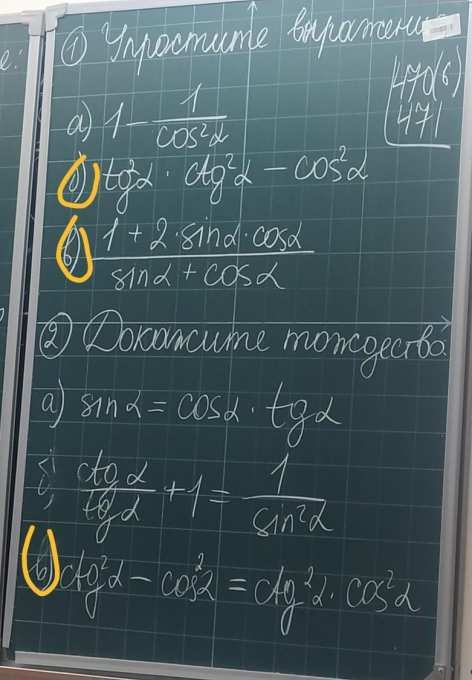 ① Упростите выражения
470(б)
471
а) 1 - 1/cos²α
б) tg²α · ctg²α - cos²α
в) (1 + 2·sinα·cosα)/(sinα + cosα)
② Докажите тождества
а) sinα = cosα · tgα
б) ctgα/tgα + 1 = 1/sin²α
в) ctg²α - cos²α = ctg²α · cos²α